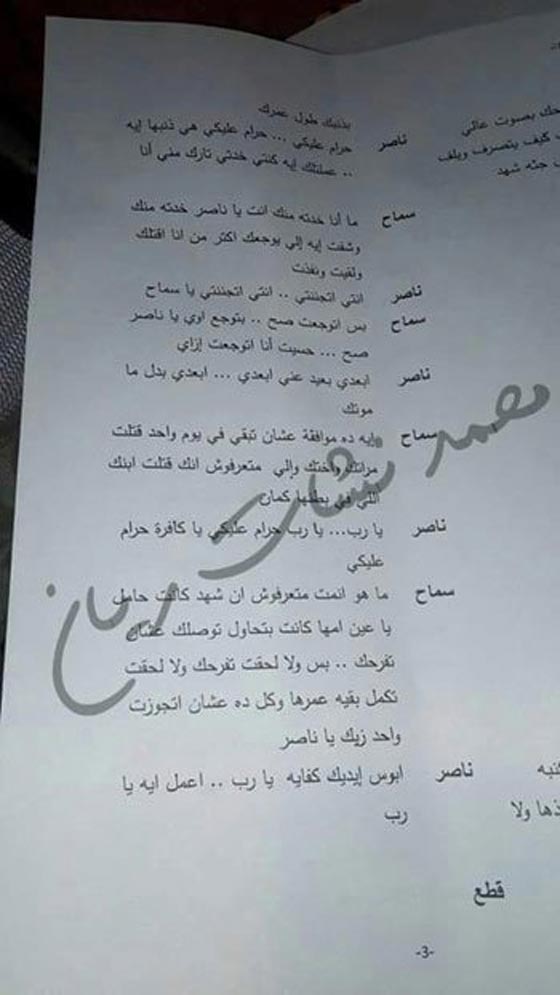 بذنبك طول عمرك
ناصر حرام عليكي ... حرام عليكي هي ذنبها إيه
.. عملتلك إيه كنتي خدتي تارك مني أنا
سماح ما أنا خدته منك انت يا ناصر خدته منك
وشفت إيه إلي يوجعك اكتر من انا اقتلك
ولقيت ونفذت
ناصر انتي اتجننتي .. انتي اتجننتي يا سماح
سماح بس اتوجعت صح .. بتوجع اوي يا ناصر
صح ... حسيت أنا اتوجعت إزاي
ناصر ابعدي بعيد عني ابعدي ... ابعدي بدل ما
موتك
سماح إيه ده موافقة عشان تبقي في يوم واحد قتلت
مراتك واختك وإلي متعرفوش انك قتلت ابنك
اللي في بطنها كمان
ناصر يا رب... يا رب حرام عليكي يا كافرة حرام
عليكي
سماح ما هو انمت متعرفوش ان شهد كانت حامل
يا عين امها كانت بتحاول توصلك عشان
تفرحك .. بس ولا لحقت تفرحك ولا لحقت
تكمل بقيه عمرها وكل ده عشان اتجوزت
واحد زيك يا ناصر
ناصر ابوس إيديك كفايه يا رب .. اعمل ايه يا
رب
قطع
-3-
حك بصوت عالي
كيف يتصرف ويلف
جثه شهد
ذها ولا